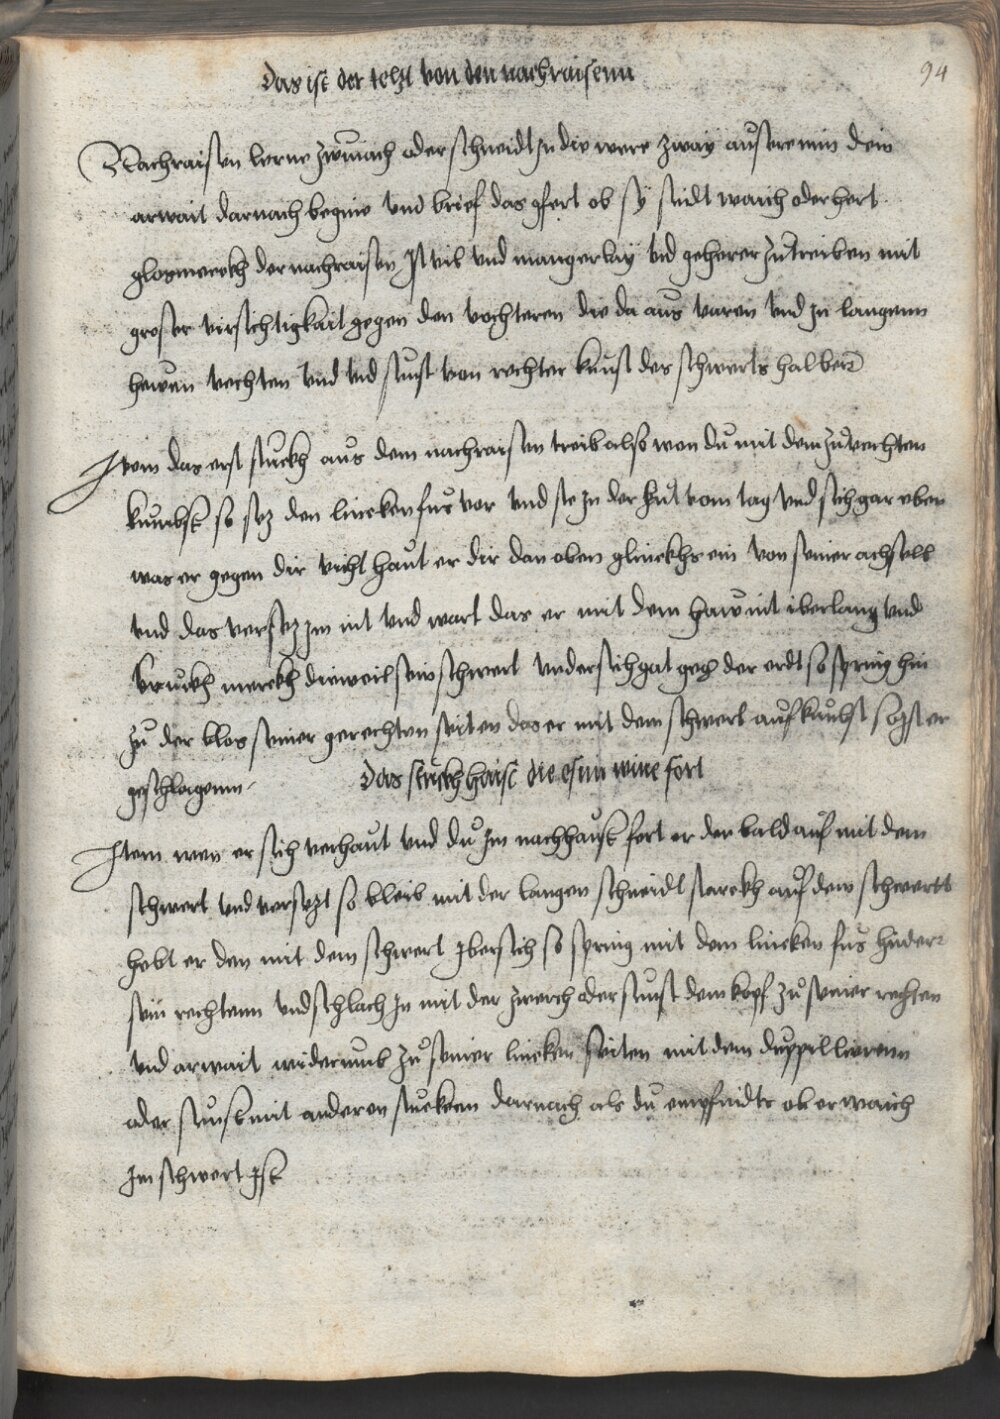 94
Das ist der text von den nachraisenn
Nachraisen lerne zwimach oder schneidt in die were zway aussere min dein
arwait darnach begine und brief das gfert ob sy sindt waich oder hert
glos merckh der nachraisen ist vil und mangerlay und geherer zu treiben mit
groser virsichtigkait gegen den vechteren die da aus varen und in langenn
hewen vechten und und sunst von rechter kunst des schwerts halben
Item das erst stuckh aus dem nachraisen treib also wen du mit dem zuvechten
kumbst so sez den lincken fus vor und ste in der hut vom tag und sich gar eben
was er gegen dir vicht haut er dir dan oben glinckhs ein von seiner achsell
und das versez im nit und wart das er mit dem haw nit iberlang und
bruckh merckh dieweil sein schwert undersich gat gegen der erdt so spring hin
zu der blos seiner gerechten seiten das er mit dem schwert auf kumbst so ist er
geschlagenn
Das stuckh haist die esim wine fort
Item wen er sich verhaut und du im nachhaust fert er der bald auf mit dem
schwert und versezt so bleib mit der langen schneidt starckh auf dem schwertt
hebt er den mit dem schwert ibersich so spring mit dem lincken fus hinder
sein rechtenn und schlach in mit der zwerch oder sunst dem kopf zu seiner rechten
und arwait widerumb zu seiner lincken seiten mit dem duppell irenn
oder sunst mit anderen stucken darnach als du empfindts ob er waich
im schwert ist